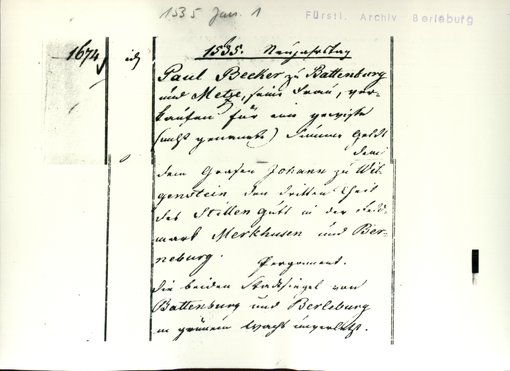 1535 Jan. 1
Fürstl. Archiv Berleburg
1674
1535. Neujahrstag
Paul Becker zu Battenburg
und Metze, seine Frau, ver-
kaufen für ein gewisse
(nicht genannte) Summe Geldes
dem
dem Grafen Johann zu Wit-
genstein den dritten Theil
des Stillen Guts in der Feld-
mark Merkhusen und Ber-
neburg.
Pergament.
Die beiden Stadtsiegel von
Battenburg und Berleburg
in grünem Wachs unverletzt.